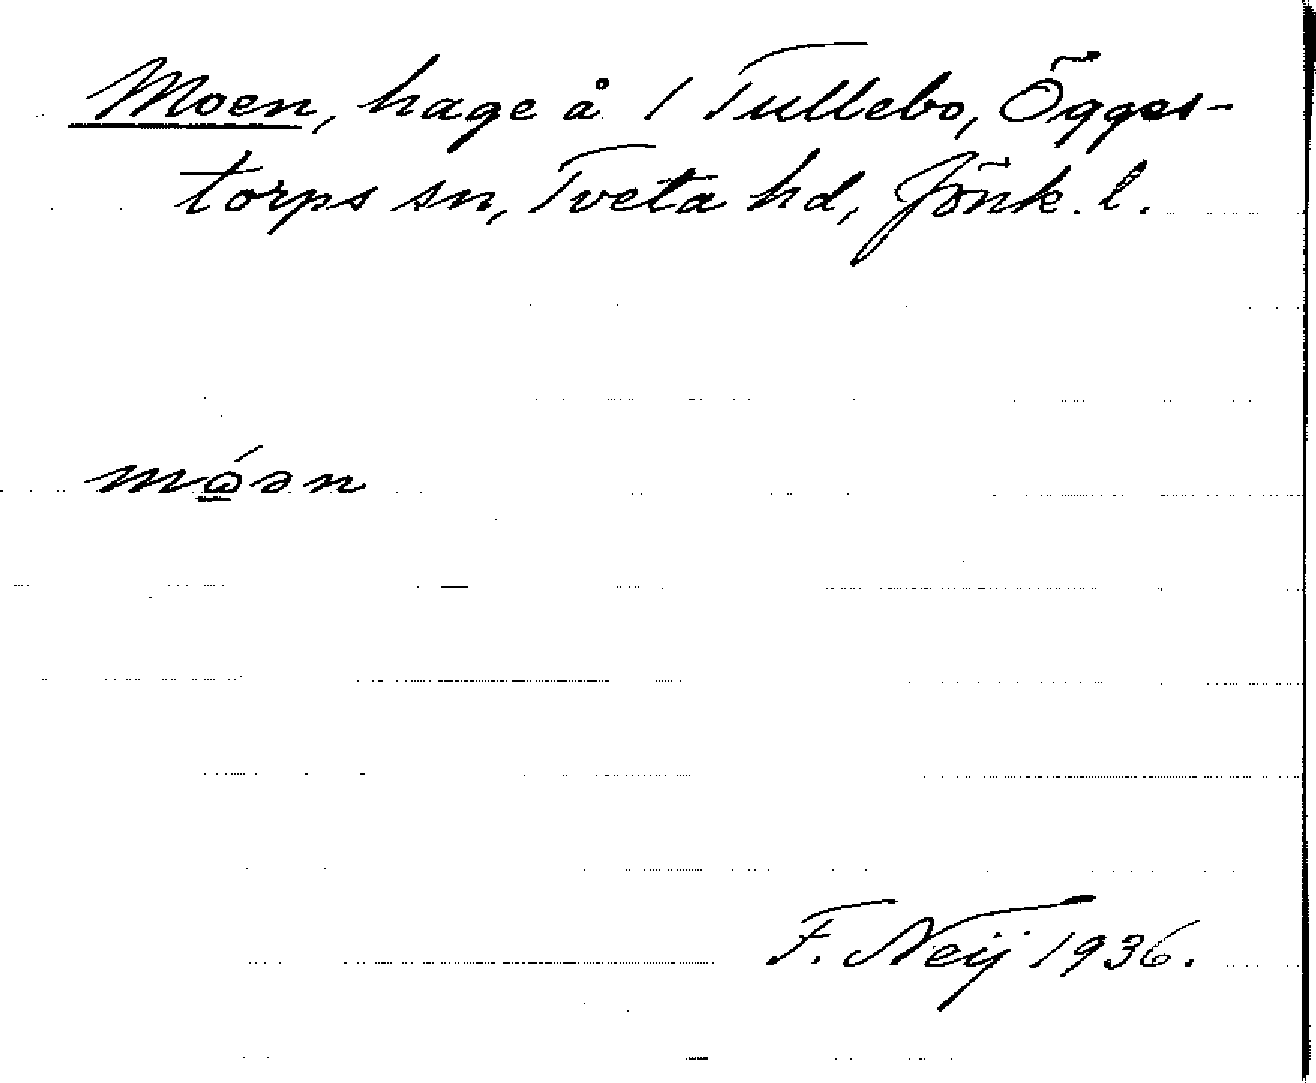 Moen, hage å 1 Tullebo, Ögges-
torps sn, Tveta hd, Jönk. l.
móən
F. Neij 1936.